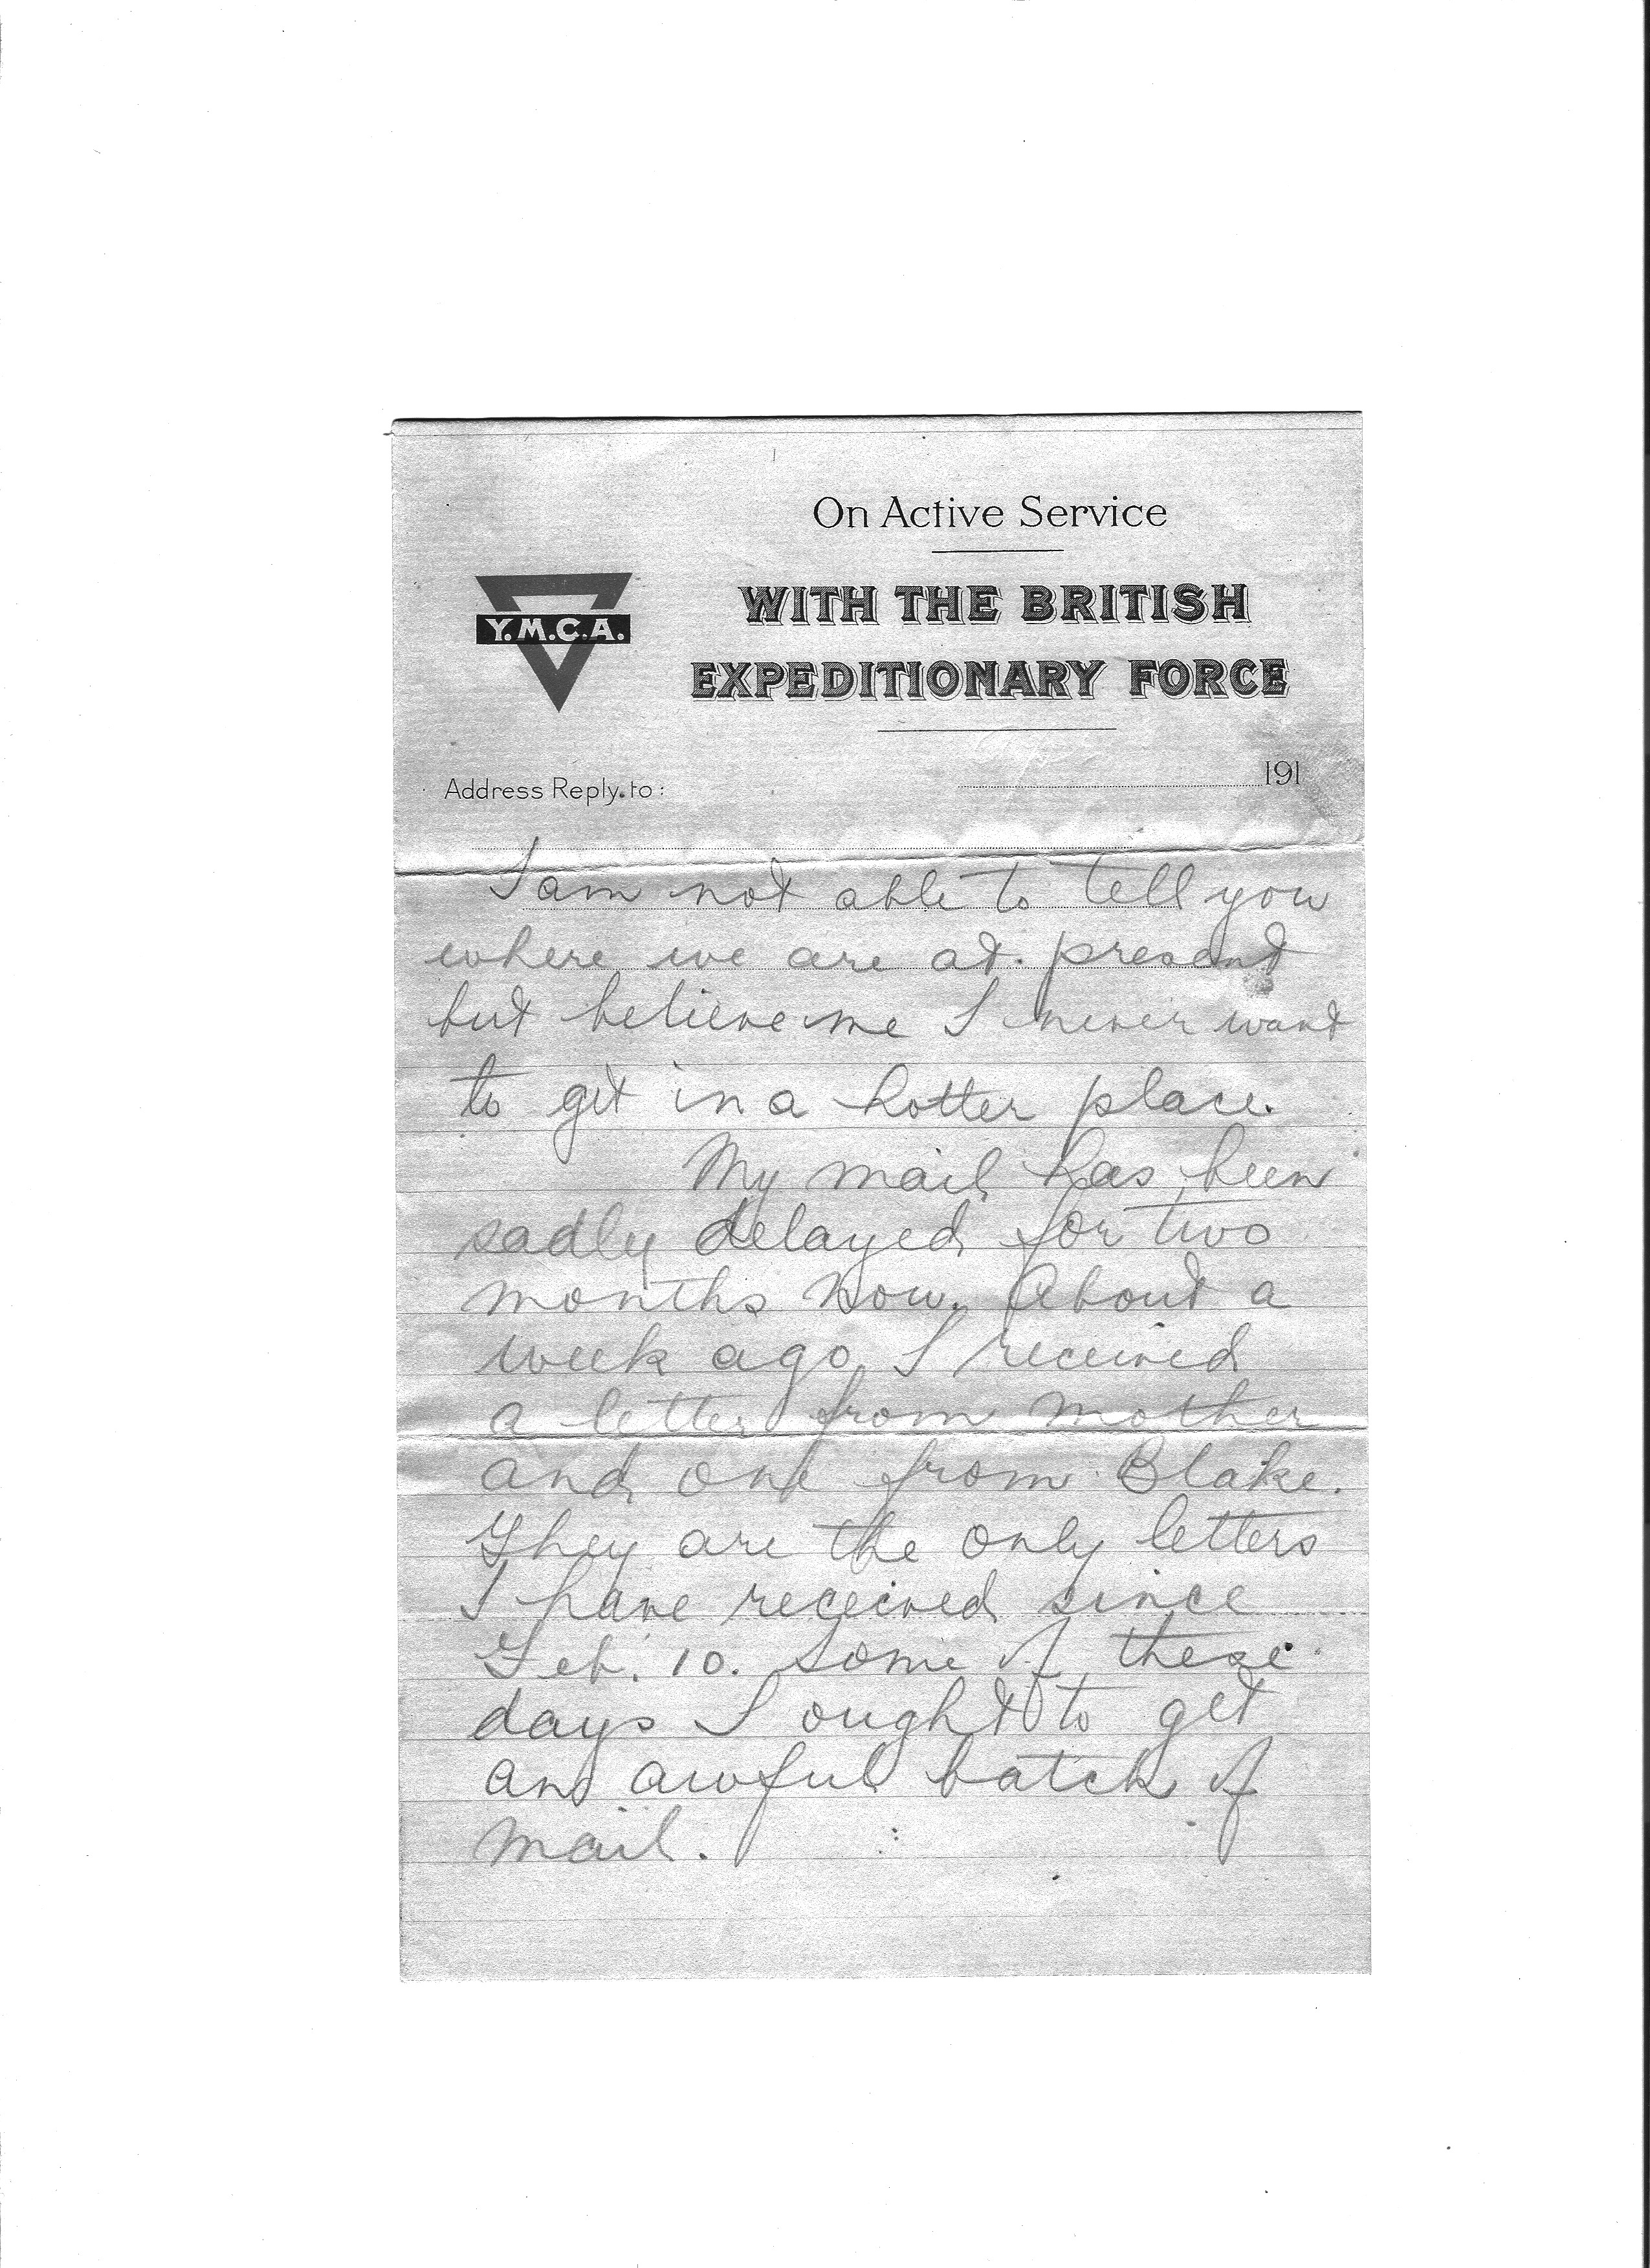 On Active Service
WITH THE BRITISH
EXPEDITIONARY FORCE
Y.M.C.A.
Address Reply to:
191
I am not able to tell you
where we are at present
but believe me I never want
to get in a hotter place.
My mail has been
sadly delayed for two
months now. About a
week ago I received
a letter from mother
and one from Blake.
They are the only letters
I have received since
Feb. 10. Some of these
days I ought to get
an awful batch of
mail.